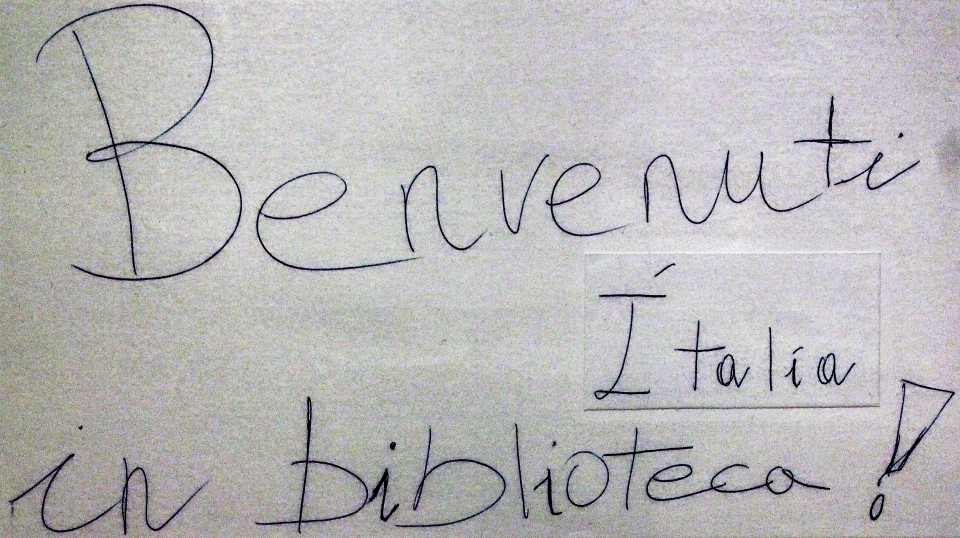 Benvenuti
Ítalia
in biblioteca!